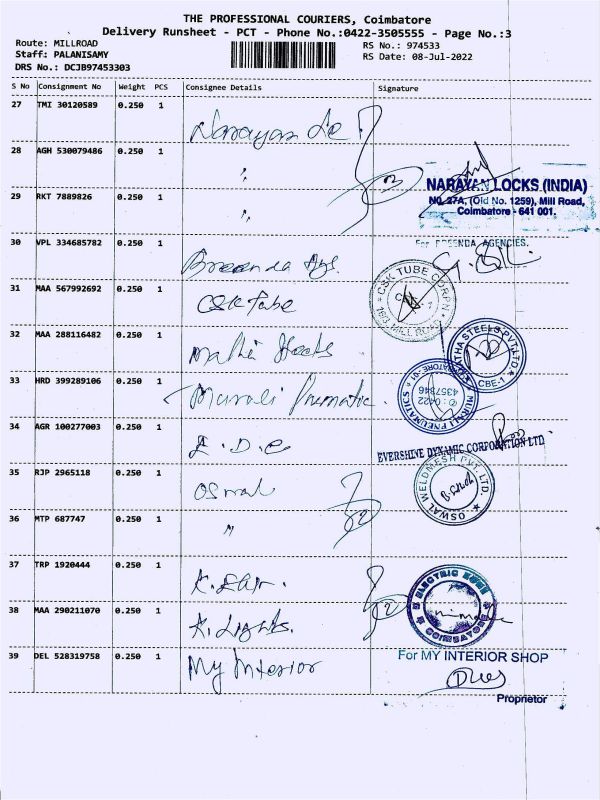 THE PROFESSIONAL COURIERS, Coimbatore
Delivery Runsheet - PCT - Phone No.:0422-3505555 - Page No.:3
Route: MILLROAD
Staff: PALANISAMY
DRS No.: DCJB97453303
RS No.: 974533
RS Date: 08-Jul-2022
S No Consignment No Weight PCS Consignee Details Signature
27 TMI 30120589 0.250 1 Narayan
28 AGH 530079486 0.250 1 "
3
NARAYAN LOCKS (INDIA)
NO. 27A, (Old No. 1259), Mill Road,
Coimbatore - 641 001.
29 RKT 7889826 0.250 1 "
30 VPL 334685782 0.250 1 Breenda Ags.
For BREENDA AGENCIES.
31 MAA 567992692 0.250 1 CSK Tube
CSK TUBE CORPN
MILL ROAD
32 MAA 288116482 0.250 1
STEELS PVT LTD
CBE-1
33 HRD 399289106 0.250 1 Murali Pneumatic.
MURALI PNEUMATICS
0422
4357346
34 AGR 100277003 0.250 1 E.D.C
EVERSHINE DYNAMIC CORPORATION LTD
35 RJP 2965118 0.250 1 Oswal
OSWAL WELDMESH PVT. LTD.
36 MTP 687747 0.250 1 "
2
37 TRP 1920444 0.250 1
ELECTRIC
COIMBATORE
38 MAA 290211070 0.250 1 A. Lights.
2
39 DEL 528319758 0.250 1 My Interior
For MY INTERIOR SHOP
Proprietor